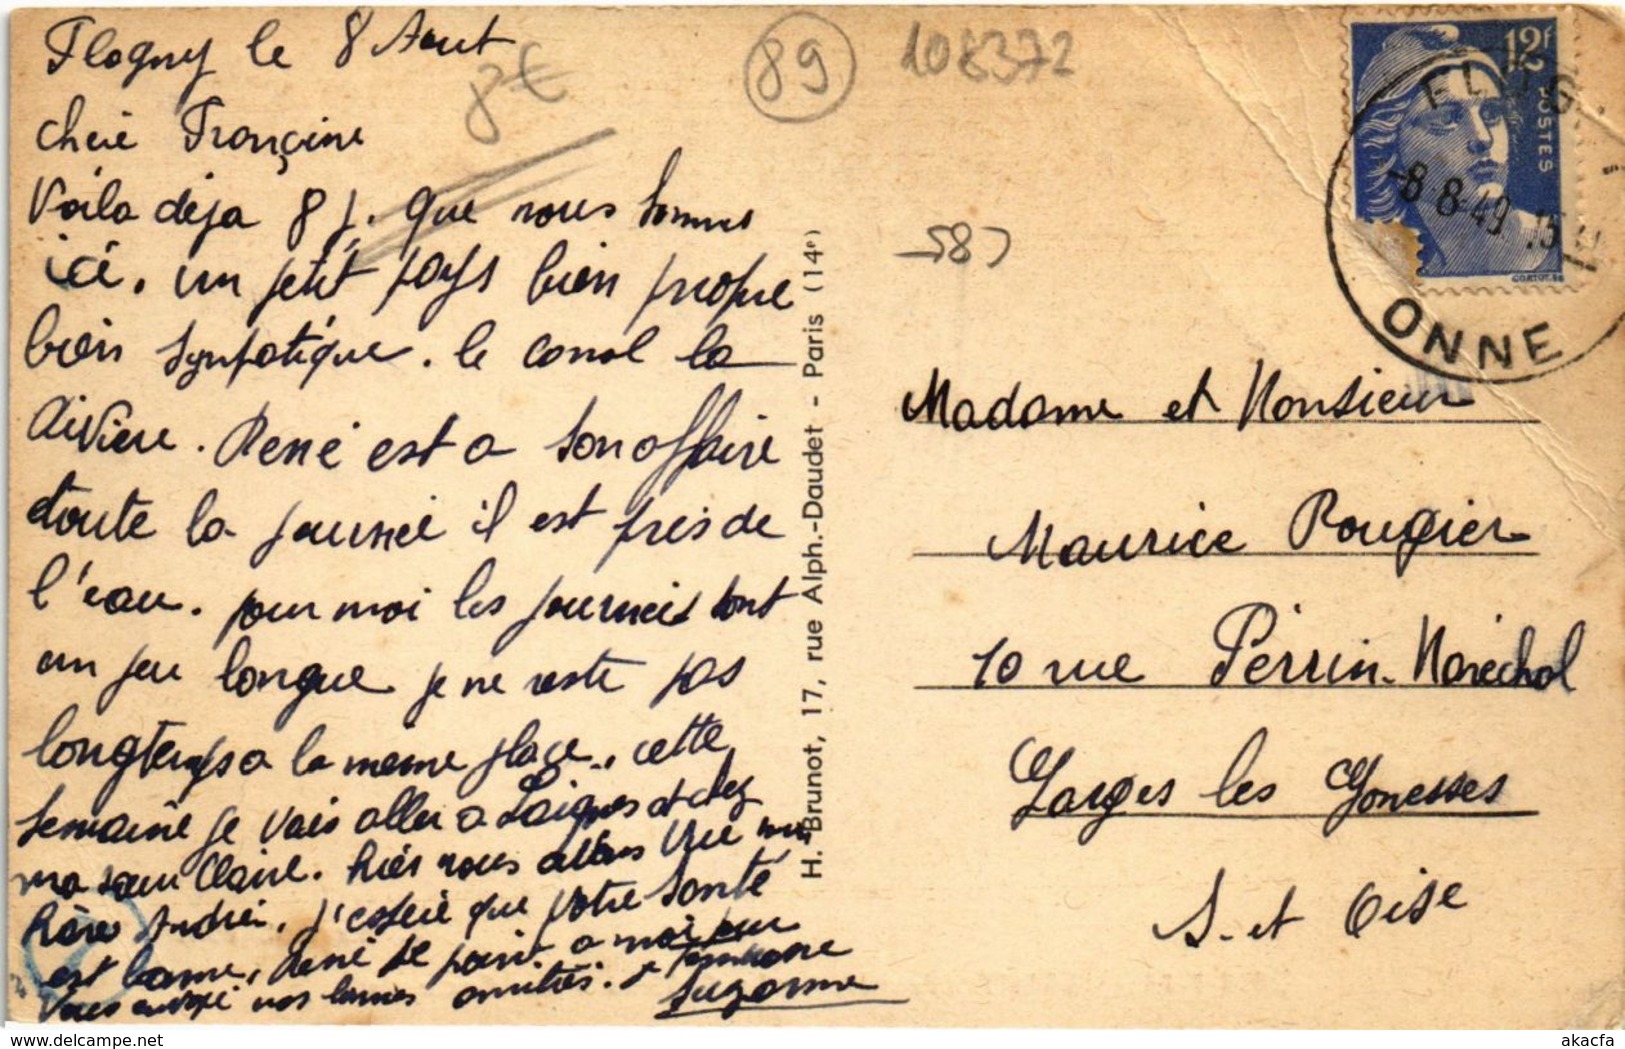 Flogny le 8 Aout
8€
89
108372
chère Françine
Voila deja 8 j. que nous sommes
ici, un petit pays bien propre
bien sympatique. le canal la
rivière. René est a son affaire
toute la journeé il est près de
l'eau. pour moi les journeés sont
un peu longue je ne reste pas
longtemps a la même place, cette
semaine je vais aller a Laignes et chez
ma sœur Claire. hier nous allons vue mon
frère André, j'espère que votre santé
est bonne, René se joint a moi pour
vous envoyé nos bonnes amitiés.
Suzanne
H. Brunot, 17, rue Alph.-Daudet - Paris (14e)
12f
POSTES
CORTOT.SC
FLOG
-8-8-49
ONNE
58
Madame et Monsieur
Maurice Rougier
10 rue Perrin-Maréchal
Garges les Gonesses
S. et Oise
https://www.delcampe.net
akacfa